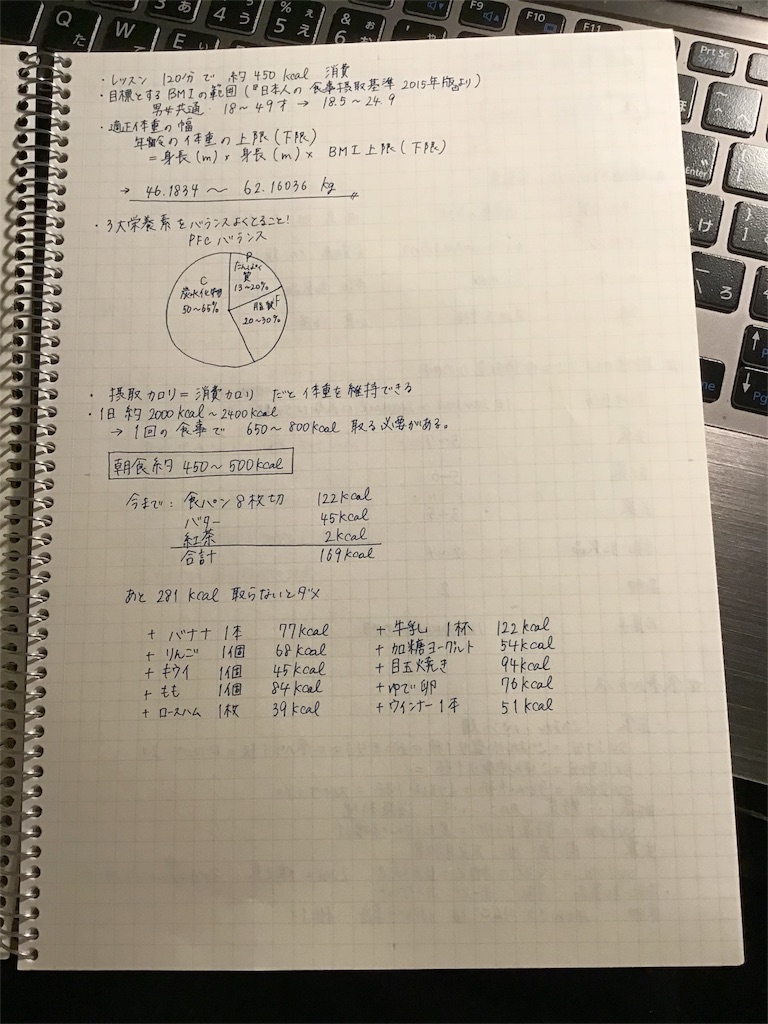 Q
た
W
て
E
い
え
5
%
ぇ
え
6
&
ぉ
お
F9
F10
F11
Prt Sc
Sys Rq
Enter
け
ろ
Pg
・レッスン 120分で 約450 kcal 消費
・目標とするBMIの範囲(『日本人の食事摂取基準 2015年版』より)
男女共通 18〜49才 → 18.5〜24.9
・適正体重の幅
年齢の体重の上限(下限)
= 身長(m) × 身長(m) × BMI上限(下限)
→ 46.1834 〜 62.16036 kg
・3大栄養素をバランスよくとること!
PFCバランス
P
たんぱく
質
13〜20%
C
炭水化物
50〜65%
脂質 F
20〜30%
・摂取カロリ=消費カロリ だと体重を維持できる
・1日 約2000kcal〜2400kcal
→ 1回の食事で 650〜800kcal 取る必要がある。
朝食約 450〜500kcal
今まで: 食パン8枚切 122kcal
バター 45kcal
紅茶 2kcal
合計 169kcal
あと 281 kcal 取らないとダメ
+ バナナ 1本 77kcal
+ りんご 1個 68kcal
+ キウイ 1個 45kcal
+ もも 1個 84kcal
+ ロースハム 1枚 39kcal
+ 牛乳 1杯 122kcal
+ 加糖ヨーグルト 54kcal
+ 目玉焼き 94kcal
+ ゆで卵 76kcal
+ ウィンナー1本 51kcal